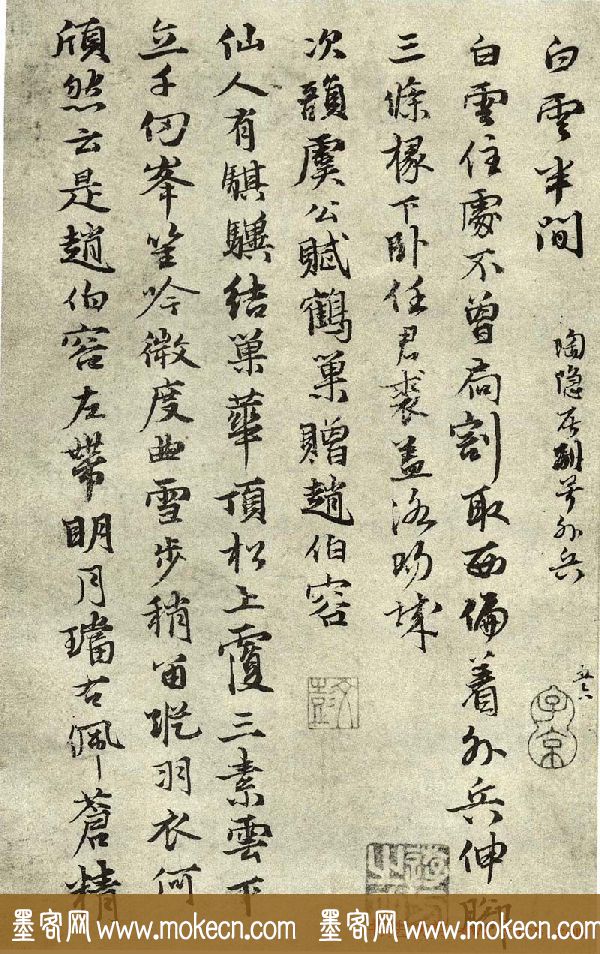 白雲半間
陶隐居别号外兵
白雲住處不曾扃割取西偏着外兵伸脚
三條椽下卧任君裘盖洛陽城
次韻虞公賦鶴巢贈趙伯容
仙人有騏驥結巢華頂松上覆三素雲下
立千仞峯笙吟微度曲雪步稍留蹤羽衣何
頎然云是趙伯容左帶明月璫右佩蒼精
子京
墨客网 www.mokecn.com 墨客网 www.mokecn.com